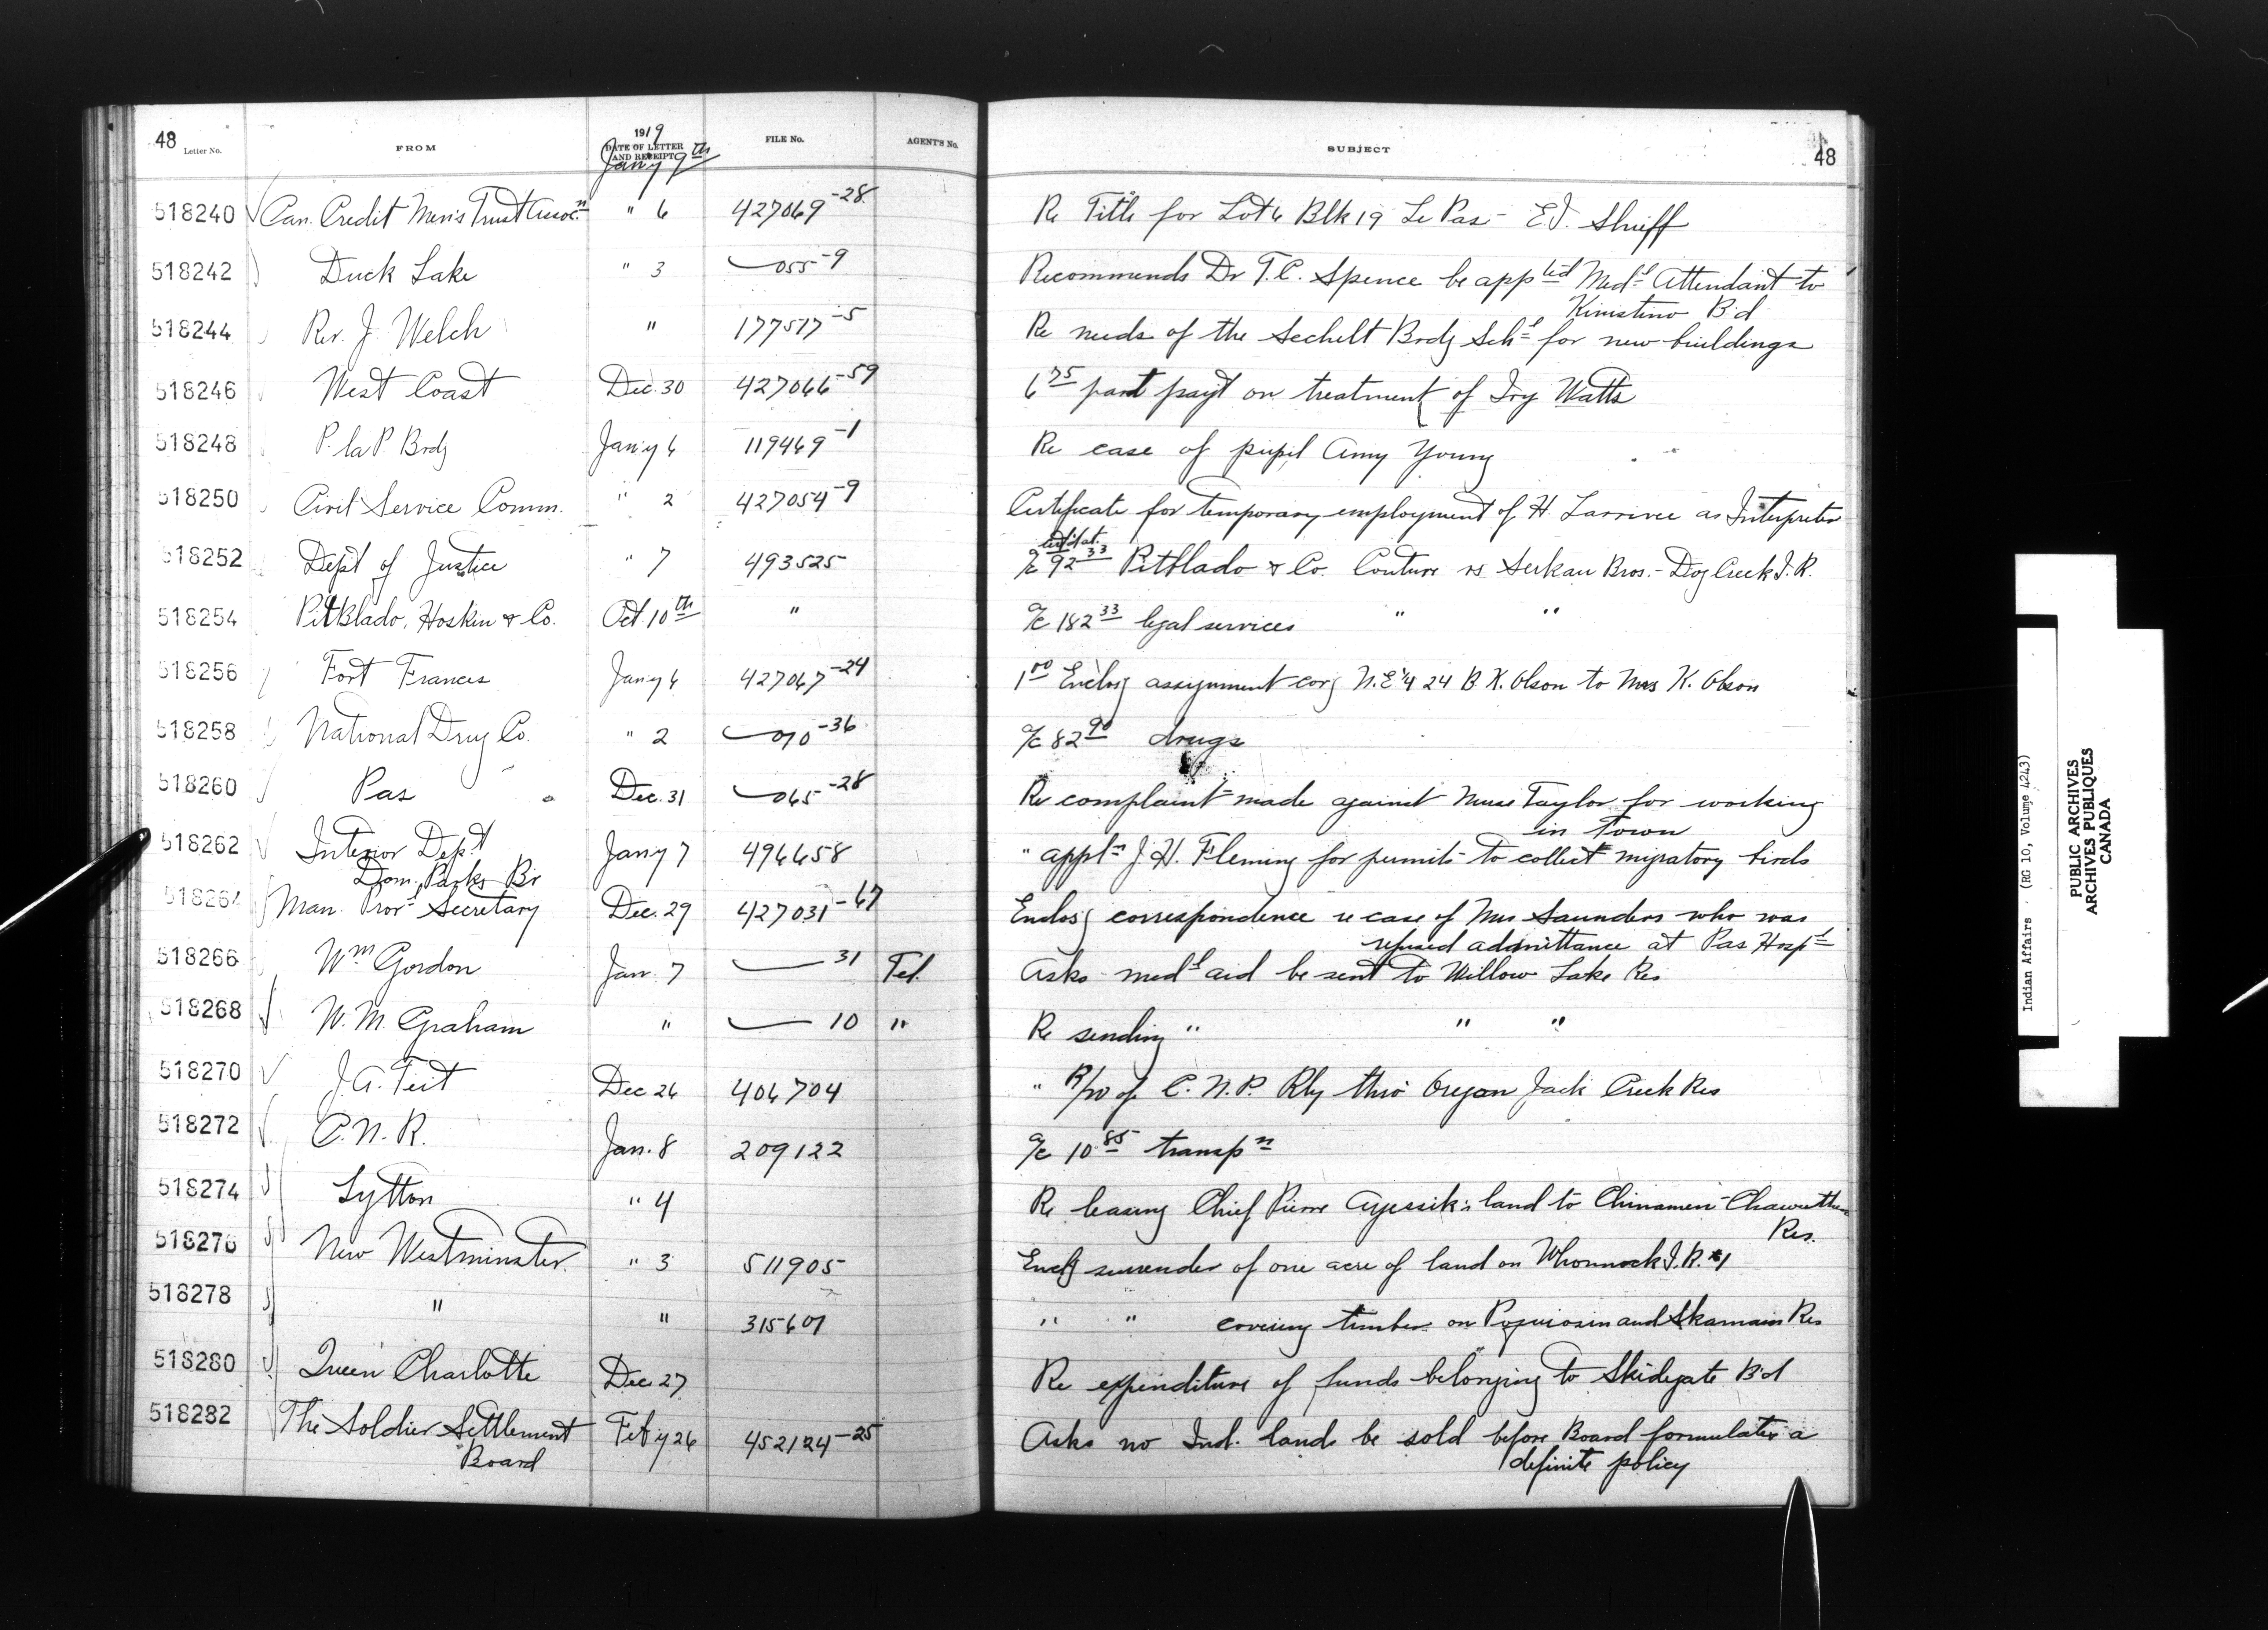 48 Letter No. FROM 1919 DATE OF LETTER AND RECEIPT Jan'y 9th FILE No. AGENT'S No. SUBJECT 48
518240 Can. Credit Men's Trust Assoc.n " 6 427069-28 Re Title for Lot 6 Blk 19 Le Pas - E.J. Shieff
518242 Duck Lake " 3 055-9 Recommends Dr T.C. Spence be appted Med.l Attendant to
Kinistino B'd
518244 Rev. J. Welch " 177517-5 Re needs of the Sechelt Brdg Sch.l for new buildings
518246 West Coast Dec. 30 427066-59 6 75 part pay't on treatment of Ivy Watts
518248 P. la P. Brdg Jan'y 6 119469-1 Re case of pupil Amy Young
518250 Civil Service Comm. " 2 427054-9 Certificate for temporary employment of H. Larrivee as Interpreter
518252 Dept of Justice " 7 493525 a/c 92 33 Pitblado & Co. Couture vs Serkau Bros. - Dog Creek I.R.
518254 Pitblado, Hoskin & Co. Oct. 10th " a/c 182 33 legal services " "
518256 Fort Frances Jan'y 6 427067-24 1 00 Enclosg assignment covg N.E 1/4 24 B.K. Olson to Mrs K. Olson
518258 National Drug Co. " 2 070-36 a/c 82 90 drugs
518260 Pas Dec. 31 065-28 Re complaint made against Nurse Taylor for working
in Town
518262 Interior Dep.t Jan'y 7 496658 " appl.n J.H. Fleming for permits to collect migratory birds
Dom. Parks Br
518264 Man. Prov.l Secretary Dec. 29 427031-67 Enclosg correspondence re case of Mrs Saunders who was
refused admittance at Pas Hosp.l
518266 Wm Gordon Jan. 7 31 Tel. Asks med.l aid be sent to Willow Lake Res
518268 W. M. Graham " 10 " Re sending " " "
518270 J.A. Teit Dec 26 406704 " R/W of C.N.P. Rly thro' Oregon Jack Creek Res
518272 C.N.R. Jan. 8 209122 a/c 10 85 transp.n
518274 Lytton " 4 Re leasing Chief Pierre Ayessik's land to Chinamen - Chawuthen
Res.
518276 New Westminster. " 3 511905 Enclg surrender of one acre of land on Whonnock I.R. #1
518278 " " 315607 " " covering timber on Poquiosin and Skamain Res
518280 Queen Charlotte Dec. 27 Re expenditure of funds belonging to Skidegate B'd
518282 The Soldier Settlement Feb'y 26 452124-25 Asks no Ind. lands be sold before Board formulates a
Board definite policy
Indian Affairs (RG 10, Volume 4243)
PUBLIC ARCHIVES
ARCHIVES PUBLIQUES
CANADA